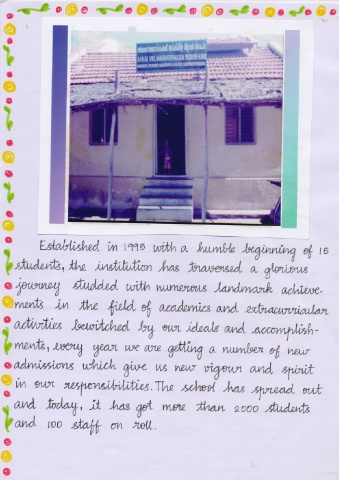 Established in 1995 with a humble beginning of 15
students, the institution has traversed a glorious
journey studded with numerous landmark achieve-
ments in the field of academics and extracurricular
activities bewitched by our ideals and accomplish-
ments, every year we are getting a number of new
admissions which give us new vigour and spirit
in our responsibilities. The school has spread out
and today, it has got more than 2000 students
and 100 staff on roll.